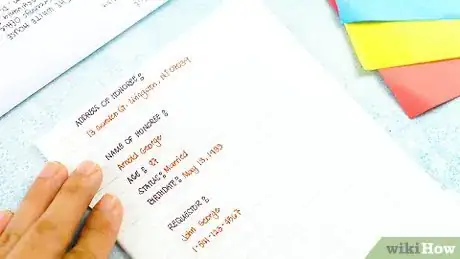 WHITE HOUSE
ADDRESS OF HONOREE:
NAME OF HONOREE:
Arnold George
AGE: 87
STATUS: Married
BIRTHDATE: May 13, 1933
REQUESTOR:
John George
1-541-123-4567
wikiHow